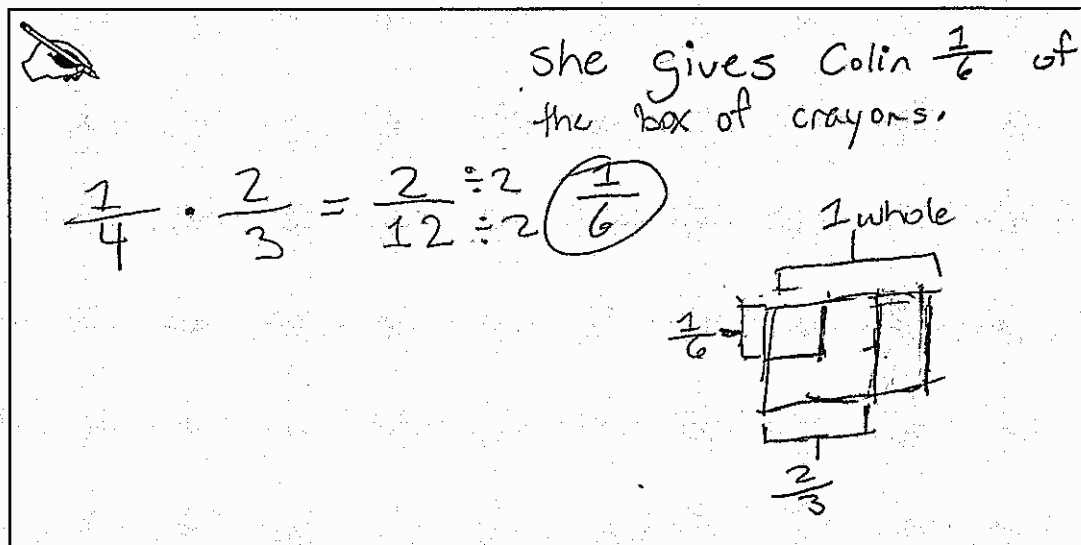 She gives Colin 1/6 of
the box of crayons.
1/4 · 2/3 = 2/12 ÷2 ÷2 1/6
1 whole
1/6
2/3